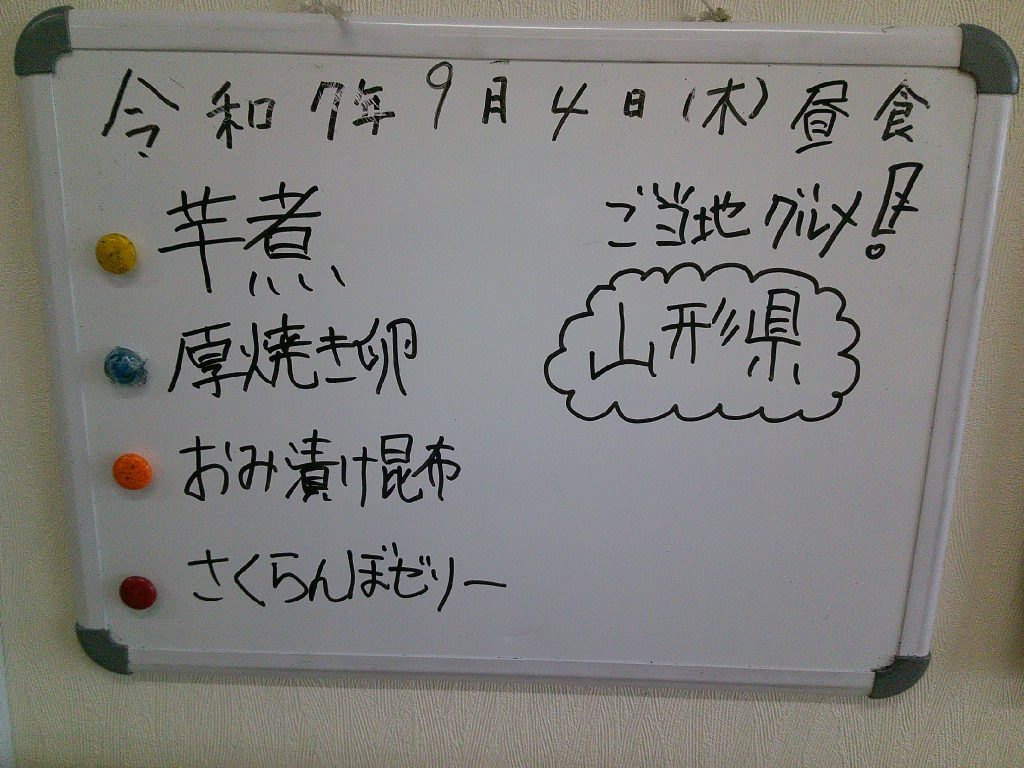 令和7年9月4日(木)昼食
芋煮
厚焼き卵
おみ漬け昆布
さくらんぼゼリー
ご当地グルメ!
山形県